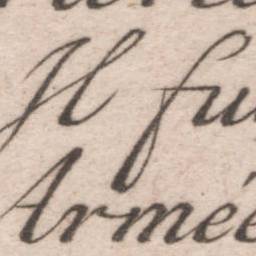 Il fu
Armée